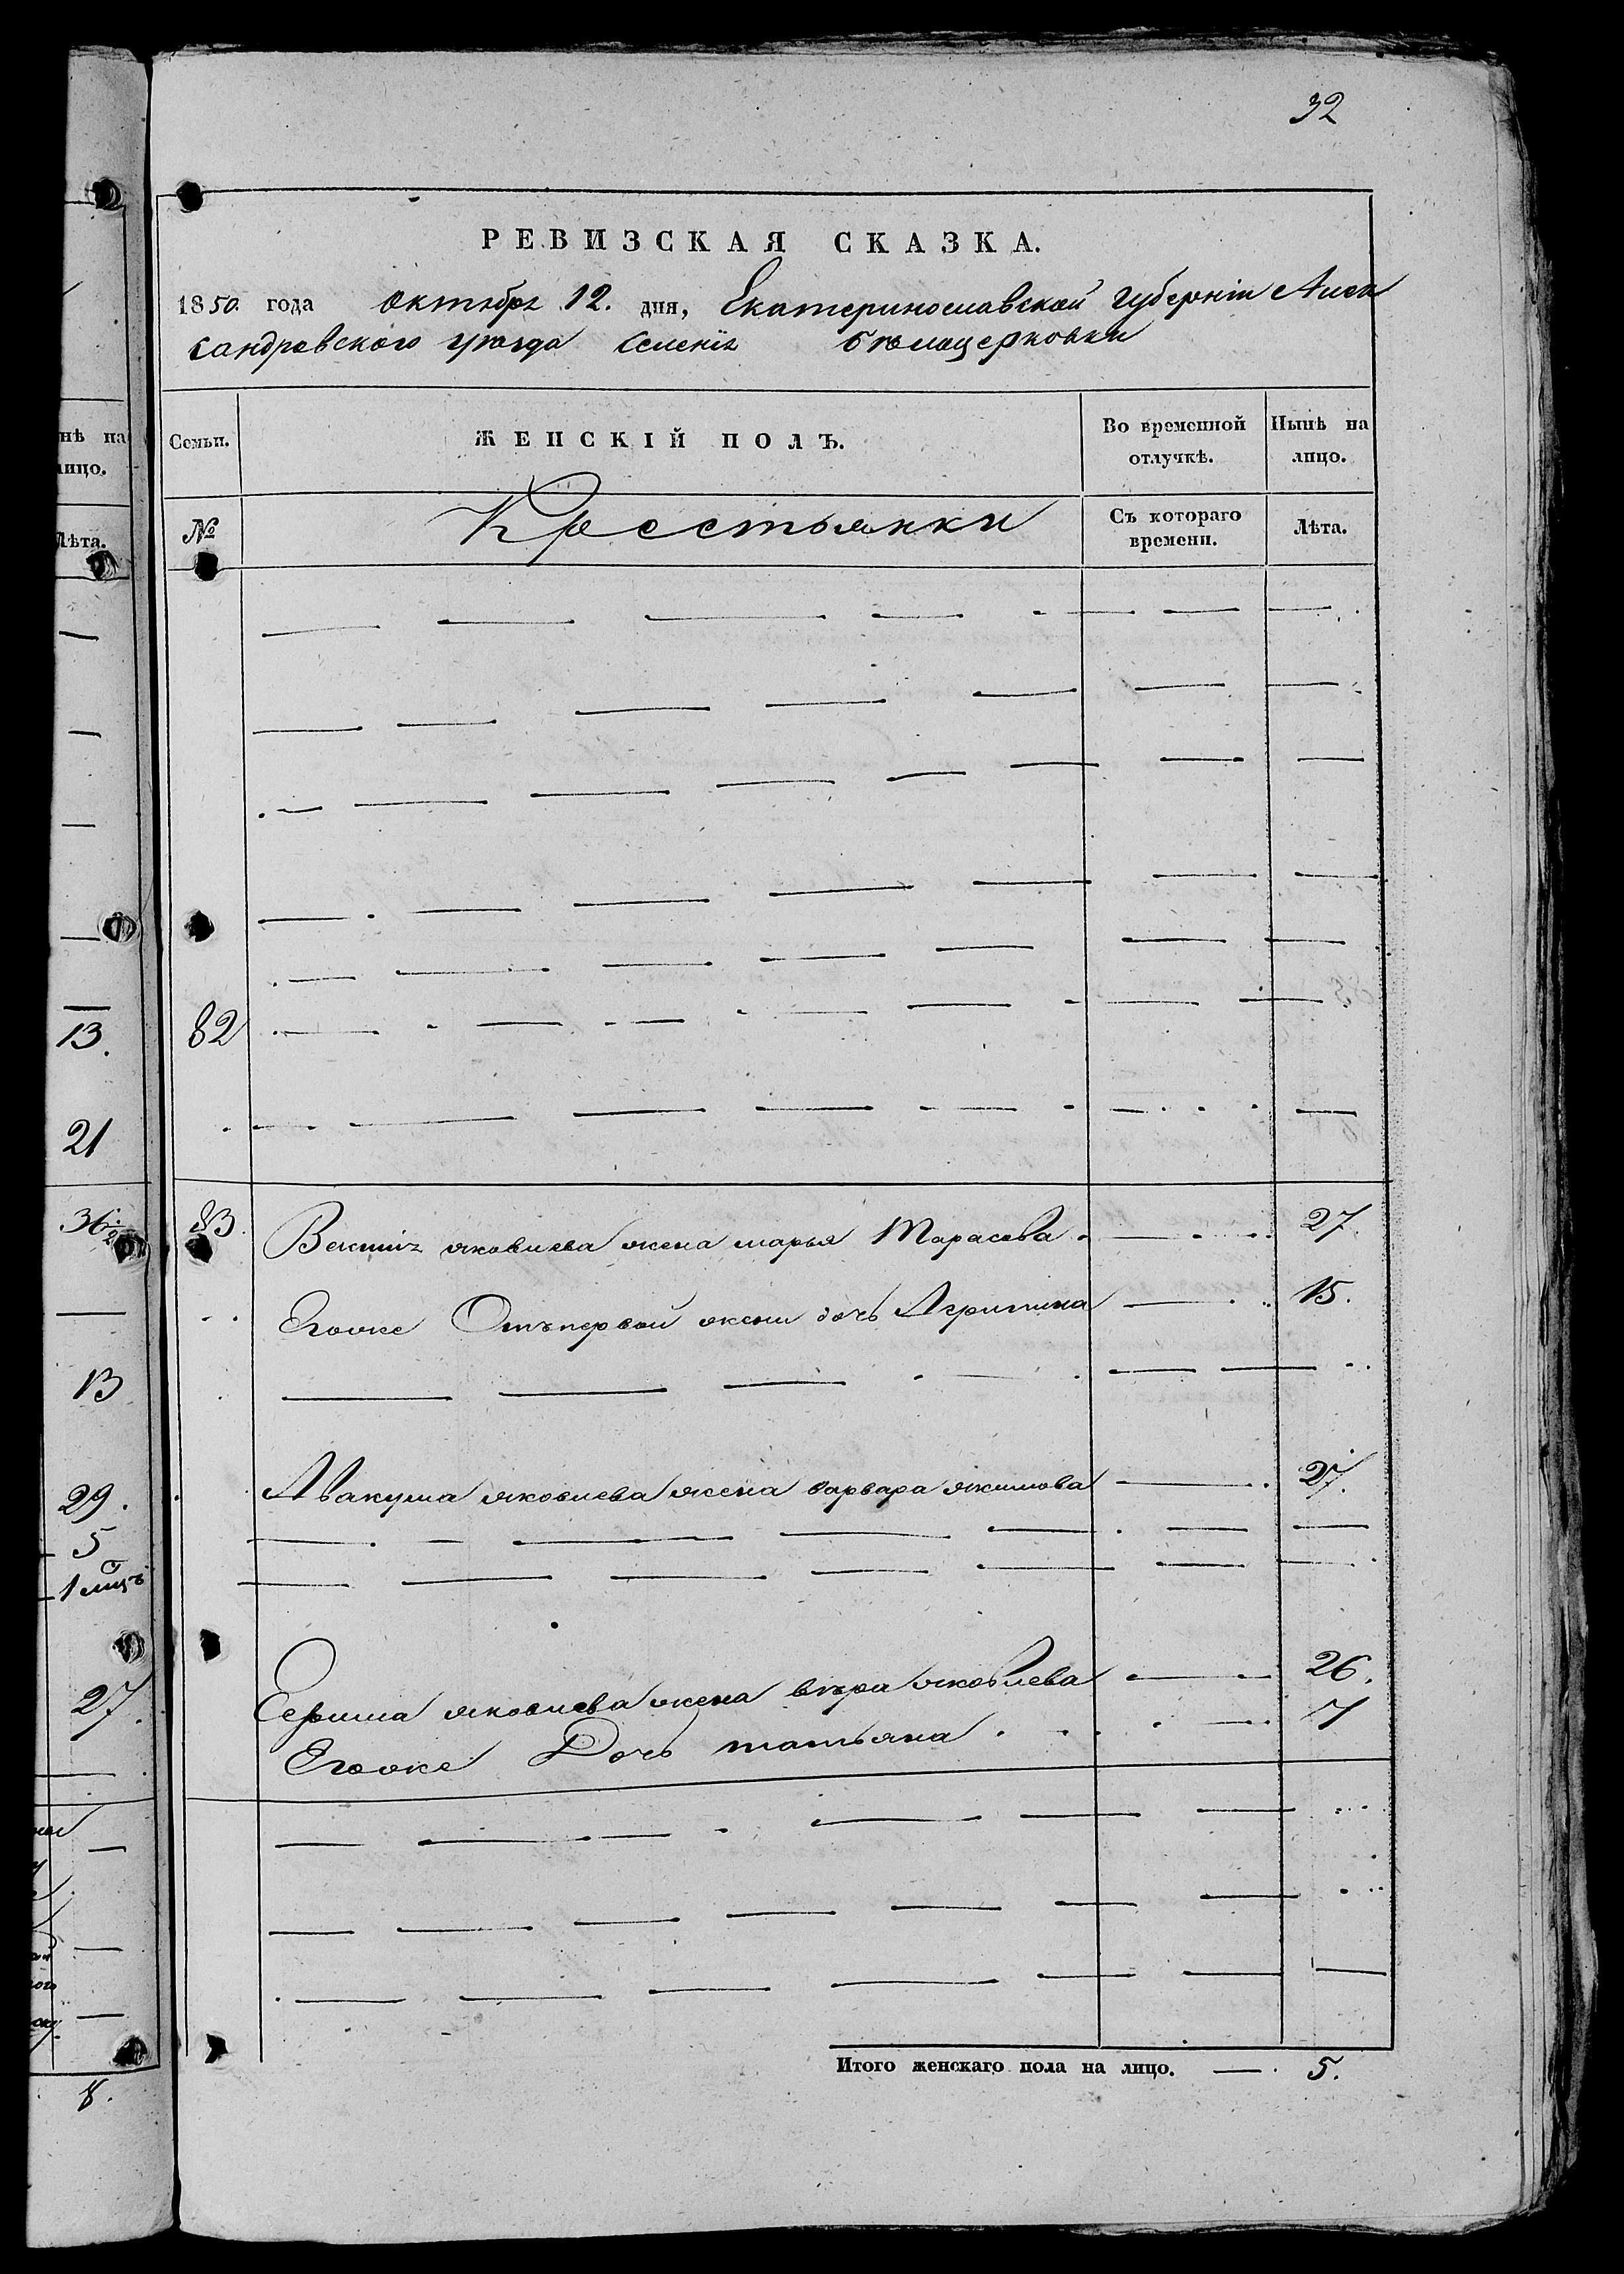 32
РЕВИЗСКАЯ СКАЗКА.
1850. года октября 12. дня, Екатеринославской Губерніи Алек
сандровского уѣзда Селенія бѣлоцерковки
нѣ на
лицо.
Лѣта.
Семьи.
ЖЕНСКІЙ ПОЛЪ.
Во временной отлучкѣ.
Нынѣ на лицо.
№
Крестьянки
Съ котораго времени.
Лѣта.
13.
82
21
36 1/2
83. яковлева жена марья Тарасова. 27
Егоже Отъ первой жены дочь Агрипина 15.
13
Авакума яковлева жена варвара якимова 27.
29.
5
1 мцъ
27.
Ефима яковлева жена вѣра яковлева 26.
Егоже Дочь татьяна 7
Итого женскаго пола на лицо. 5.
8.